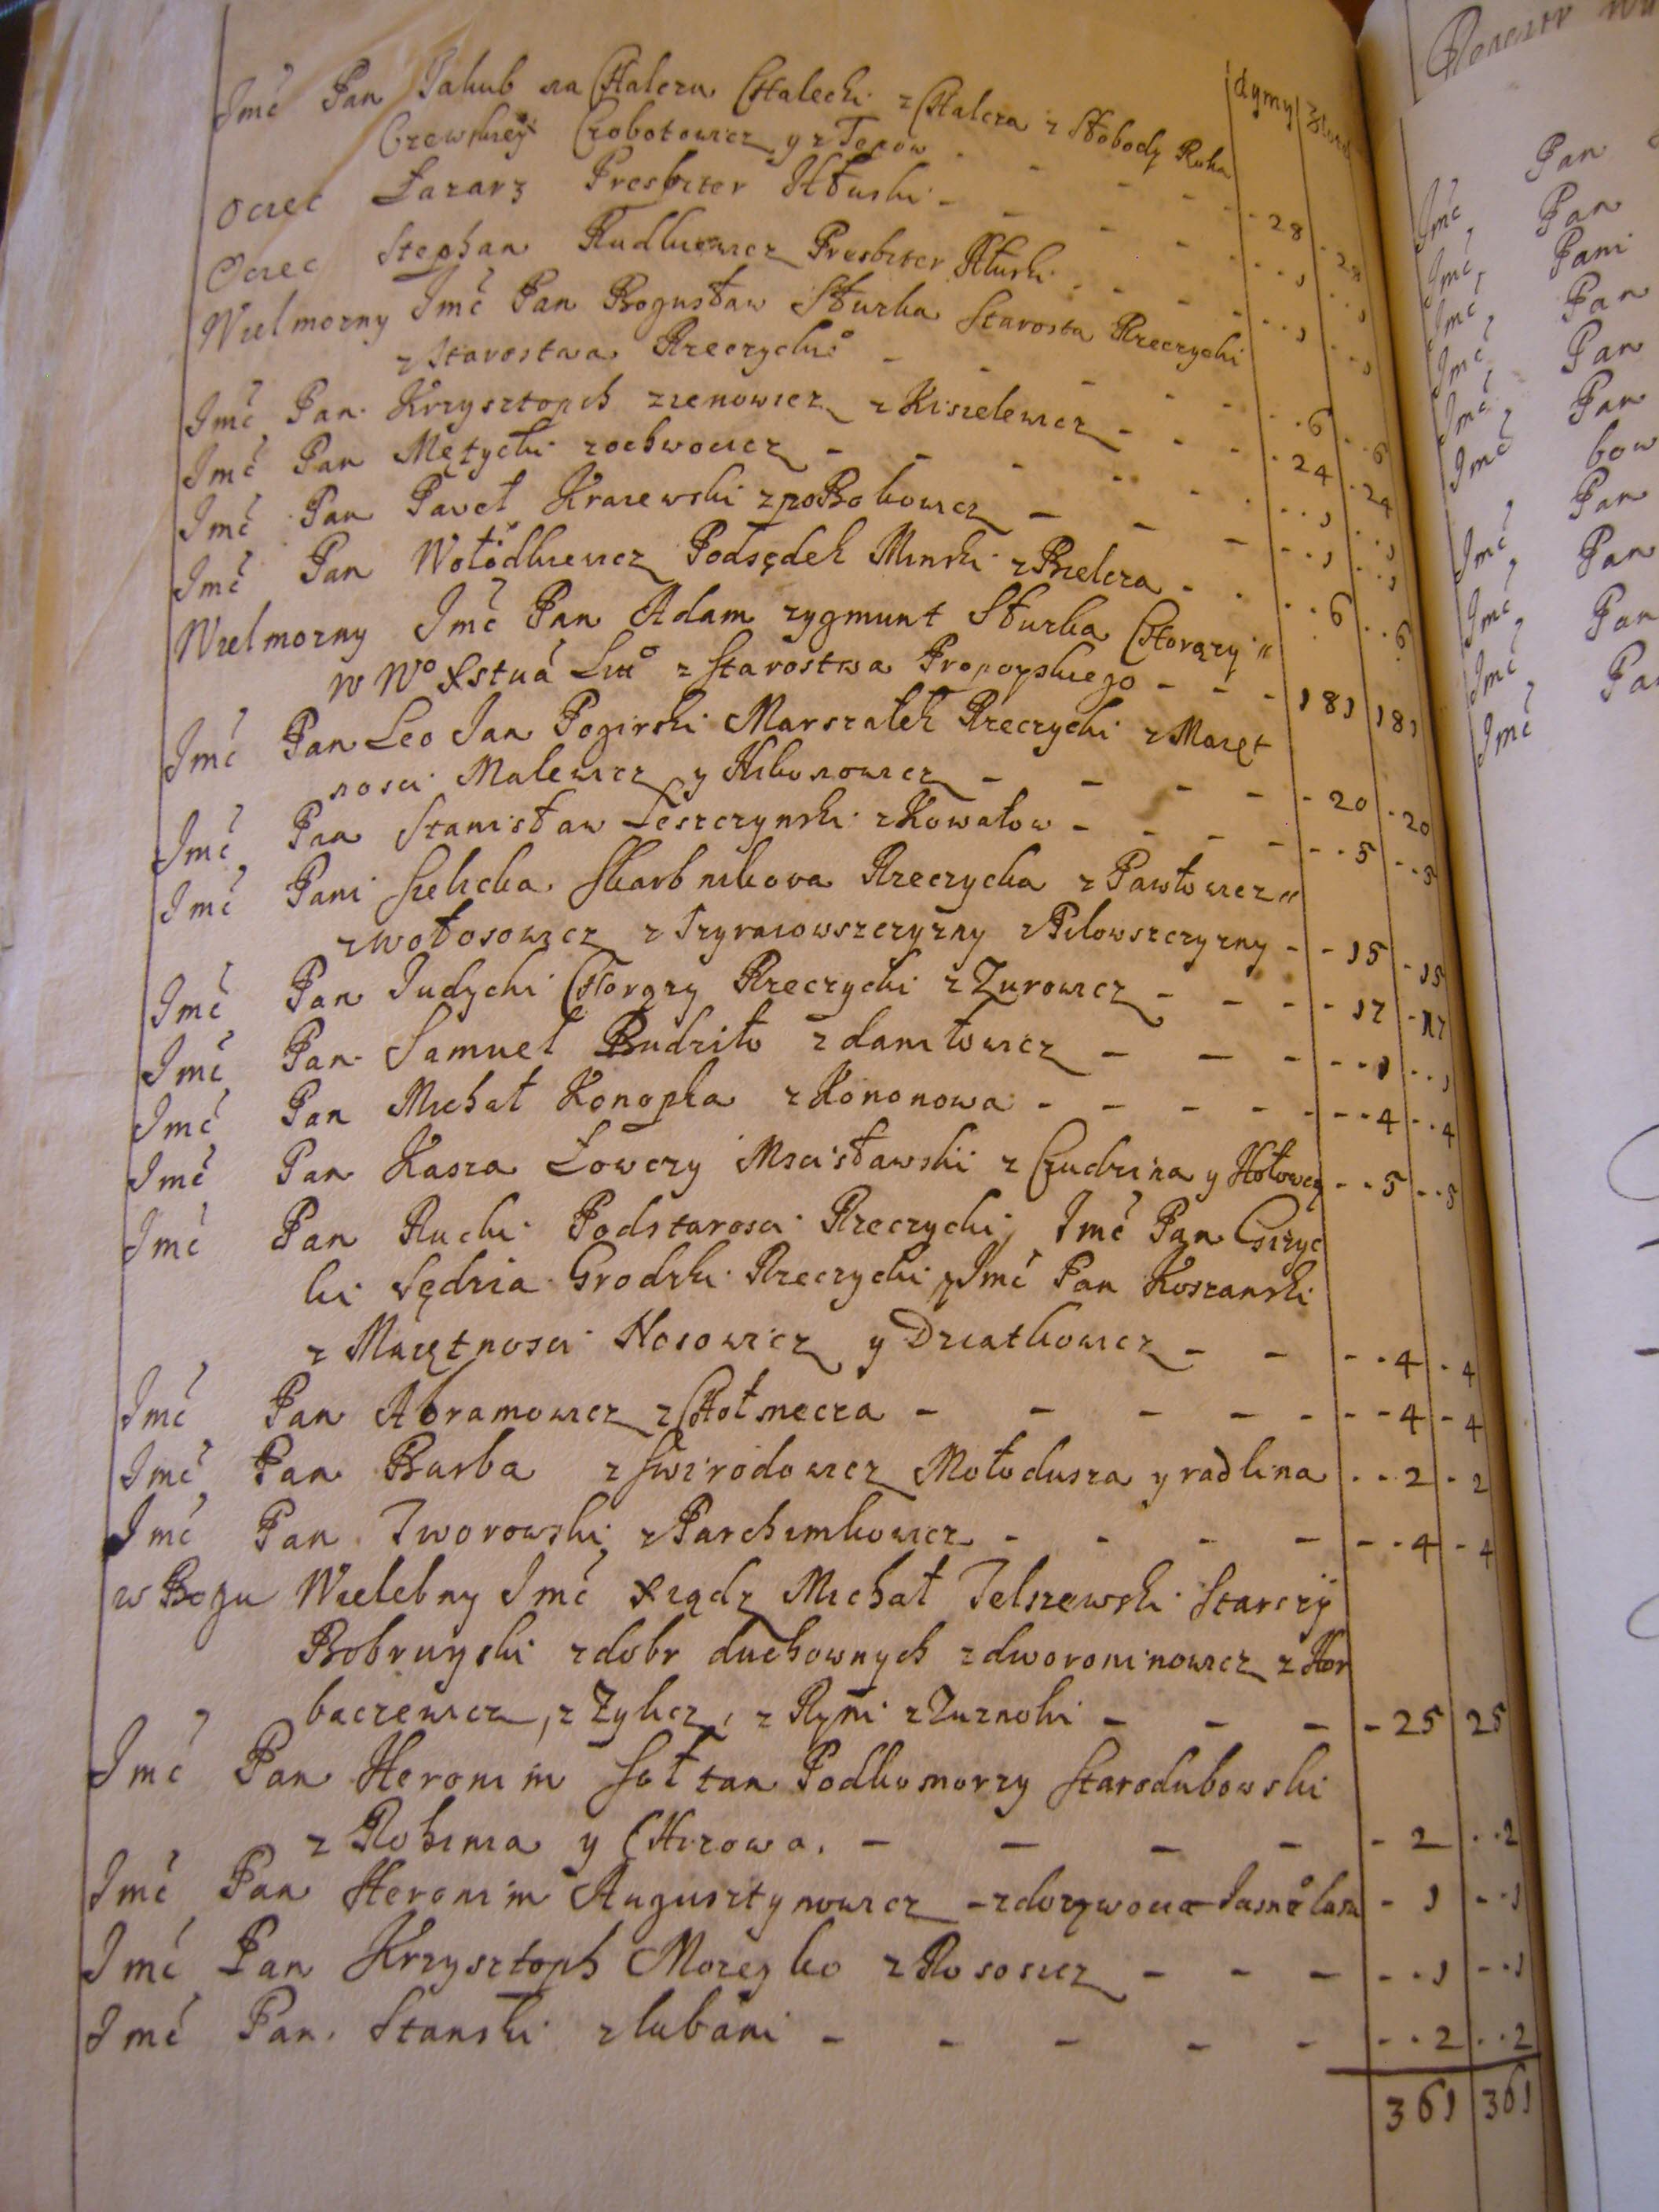 dymy
Imć Pan Jakub na Chalczu Chalecki z Chalcza z Słobody Ruha
Czewskiej Czobotowicz y z Teków - - - 28 28
Ociec Łazarz Presbiter Hłuski - - - 1 1
Ociec Stephan Rudkiewicz Presbiter Hłuski - - - 1 1
Wielmozny Imć Pan Bogusław Słuzka Starosta Rzeczycki
z Starostwa Rzeczyckio - - - 6 6
Imć Pan Krzysztoph zienowicz z Kisielewicz - - - 24 24
Imć Pan Mężycki z ochwoicz - - - 1 1
Imć Pan Paweł Kraiewski z poBokowicz - - - 1 1
Imć Pan Wołodkiewicz Podsędek Minski z Bielcza - - 6 6
Wielmozny Imć Pan Adam zygmunt Słuzka Chorązy
W Wo Xstwá Litto z Starostwa Propoyskiego - - - 181 181
Imć Pan Leo Jan Pogirski Marszałek Rzeczycki z Maięt
nosci Malewicz y Hikonowicz - - - 20 20
Imć Pan Stanisław Leszczynski z Kowałow - - - 5 5
Imć Pani Sielicka Skarbnikowa Rzeczycka z Pawłowicz
z Wołosowicz z Szyraiowszczyzny z Pilowszczyzny - - 15 15
Imć Pan Judycki Chorązy Rzeczycki z Zurowicz - - - 17 17
Imć Pan Samuel Budziło z daniłowicz - - - 1 1
Imć Pan Michał Konopka z Kononowa - - - 4 4
Imć Pan Kasza Łowczy Mscisławski z Czudzina y Hołowcz - - 5 5
Imć Pan Rucki Podstarosci Rzeczycki, Imć Pan
ki Sędzia Grodzki Rzeczycki, y Imć Pan Koszanski
z Maiętnosci Nosowicz y Dziatkowicz - - - 4 4
Imć Pan Abramowicz z Chołmecza - - - 4 4
Imć Pan Burba z Swirodowicz Mołodusza y radlina - - 2 2
Imć Pan Tworowski z Parchimkowicz - - - 4 4
w Bogu Wielebny Imć Xiądz Michał Telszewski Starszÿ
Bobruyski z dobr duchownych z dworoninowicz z Hor
baczewicz, z Zylicz, z Ryni z Zuznoki - - - 25 25
Imć Pan Heronim Sołtan Podkomorzy Starodubowski
z Rohinia y Chizowa. - - - 2 2
Imć Pan Heronim Augusztynowicz - - 1 1
Imć Pan Krzysztoph Mozeyko z Rososicz - - - 1 1
Imć Pan Stanski z lubani - - - 2 2
361 361
Pan
Imć Pan
Imć Pani
Imć Pan
Imć Pan
Imć Pan
Imć bow
Pan
Imć Pan
Imć Pan
Imć
Imć